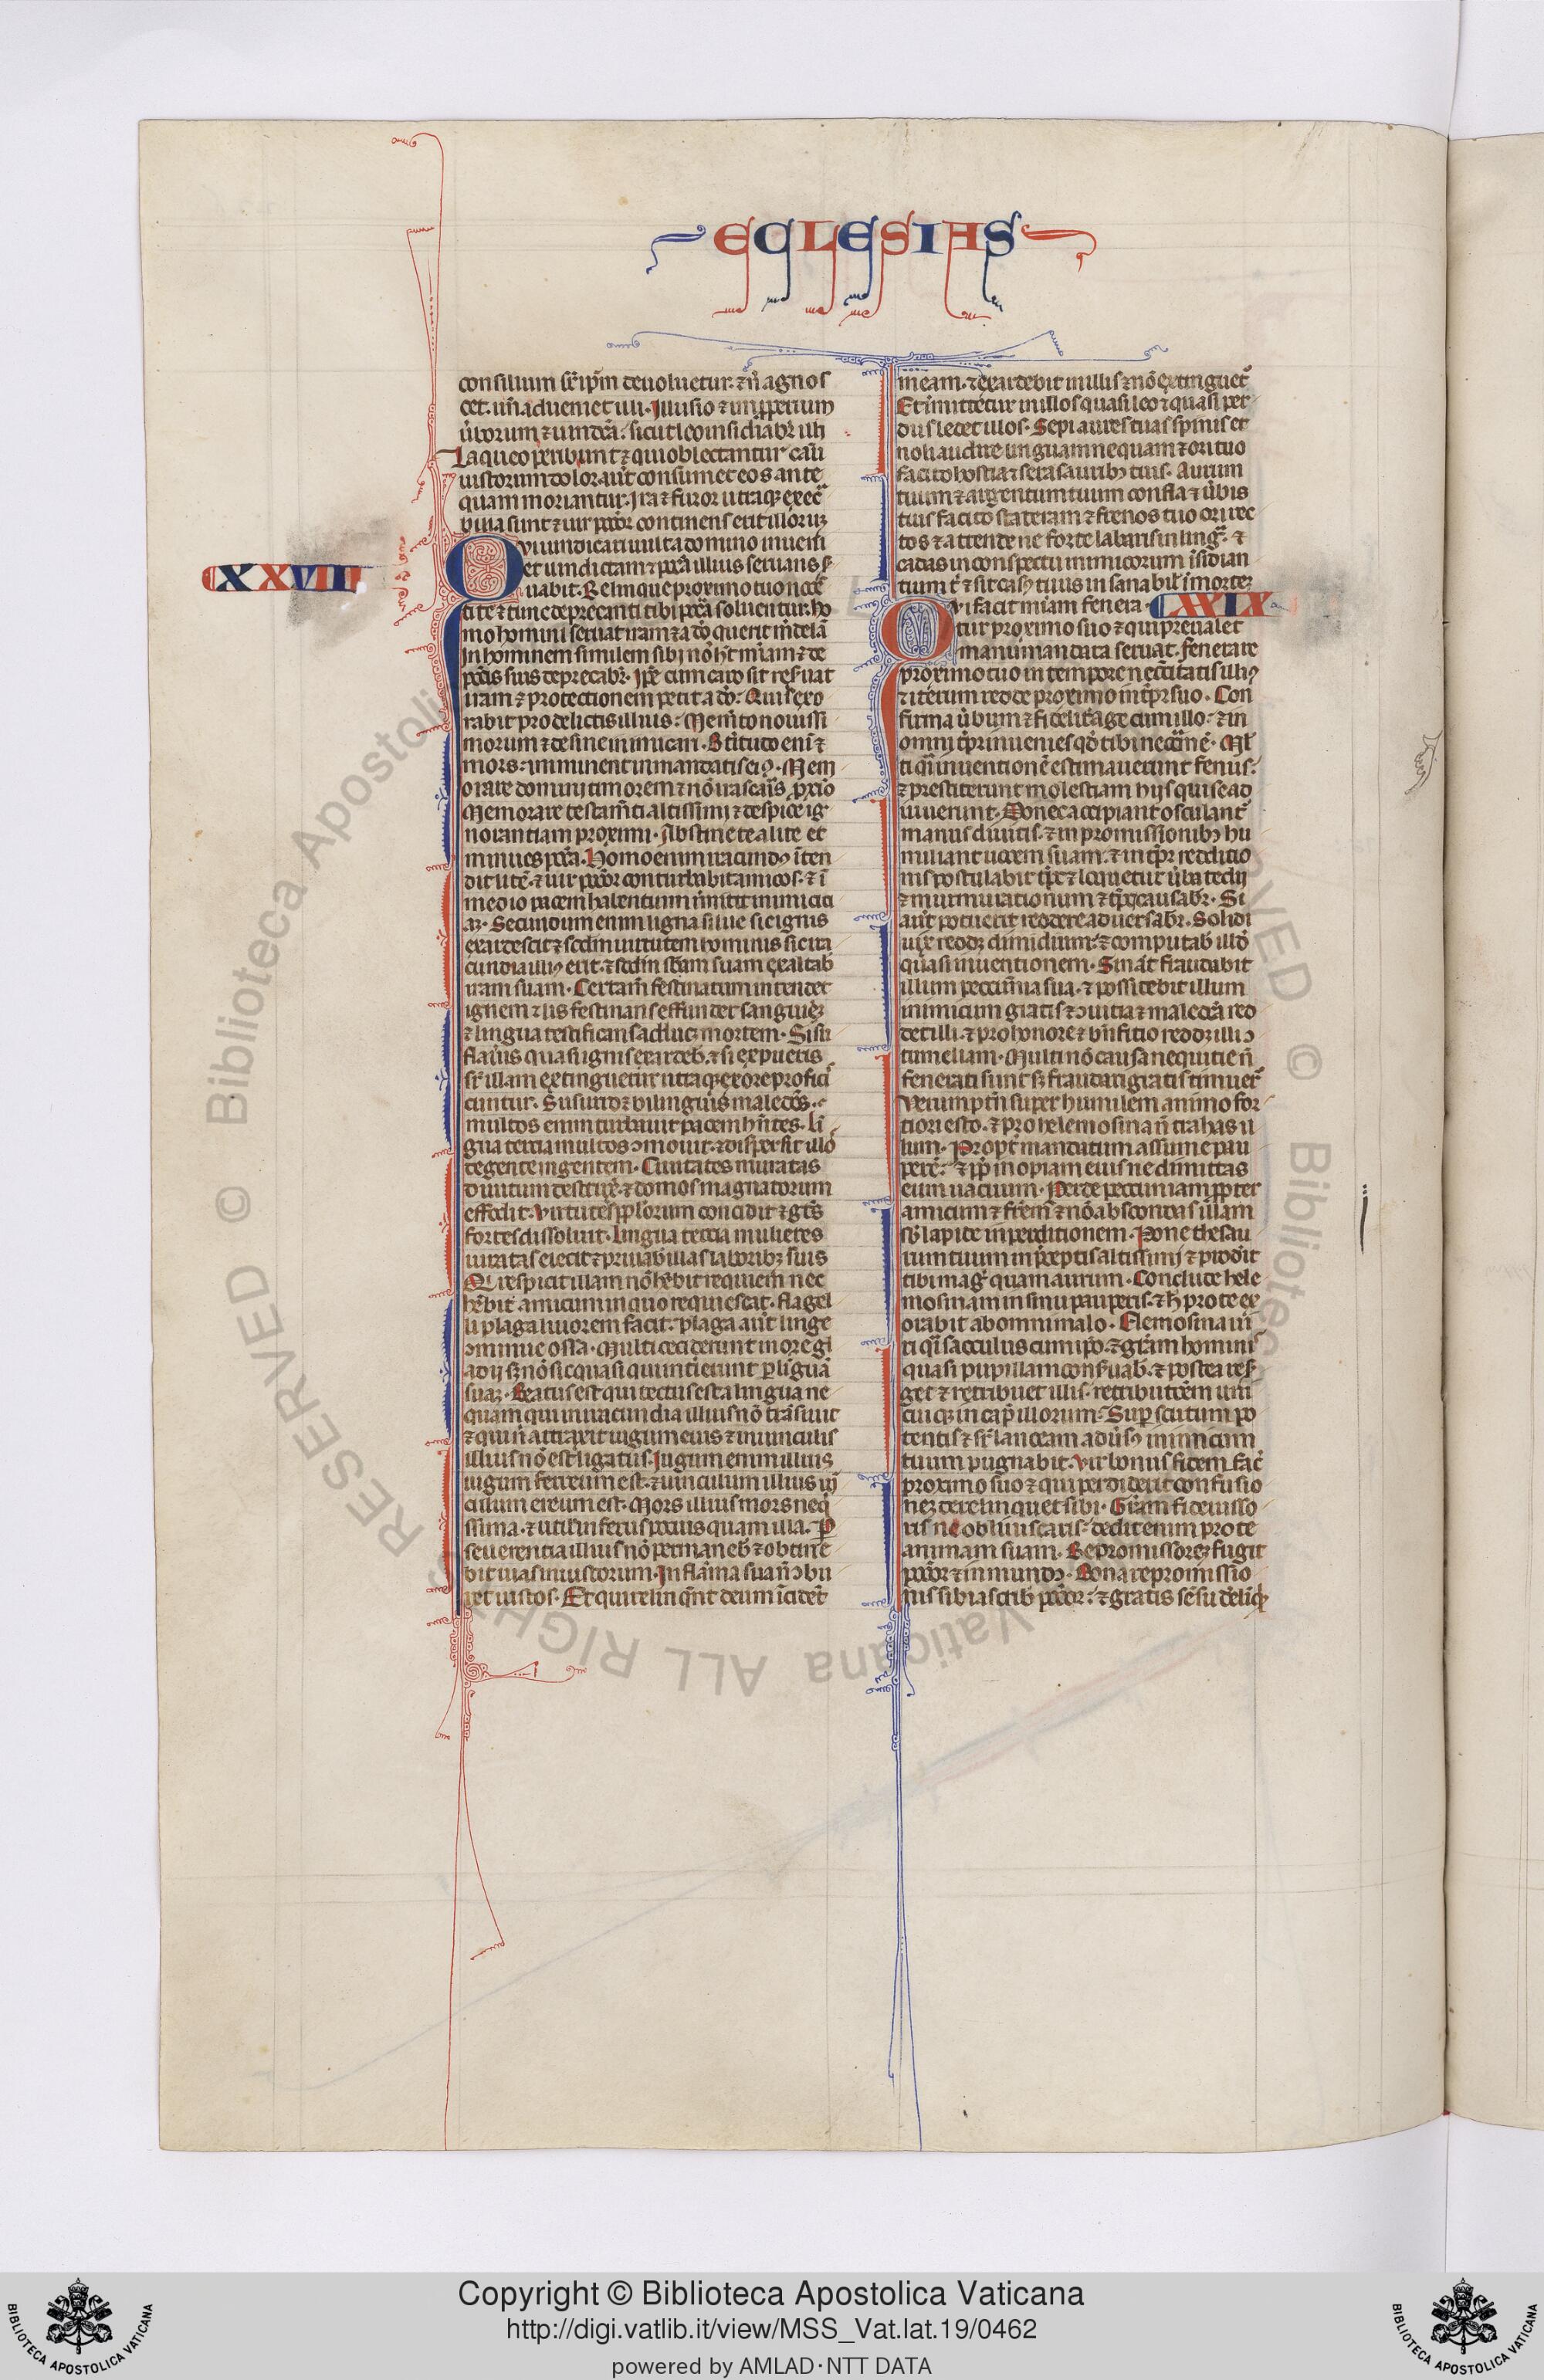 ECLESIAS
consilium sr̄ ip̄m deuoluetur. ⁊ n̄ agnos
cet. un̄ adueniet illi. Illusio ⁊ improperium
ṽborum ⁊ uindcā: sicut leo insidiabr̄ illi
Laqueo peribunt ⁊ qui oblectantur casu
iustorum dolor aut̄ consumet eos ante
quam moriantur. Ira ⁊ furor utraqꝫ execr̄
bilia sunt ⁊ uir pctōr continens erit illoruꝫ
XXVIII
Qui uindicari uult a domino inueni
et uindictam ⁊ pctā illius seruans s̄
uabit. Relinque proximo tuo nocē
ti te ⁊ tunc deprecanti tibi pctā soluentur. ho
mo homini seruat iram ⁊ a dō querit medelā
In hominem similem sibi nō ht̄ miam ⁊ de
pctīs suis deprecabr̄. Ipē cum caro sit reseruat
iram ⁊ protectionem petit a dō: Quis exo
rabit pro delictis illius: Mem̄to nouissi
morum ⁊ desine inimicari.
mors: imminent in mandatis eiꝰ. Mem
orare domini timorem ⁊ nō irascaris pxīo
Memorare testam̄ti altissimi ⁊ despice ig
norantiam proximi. Abstine te a lite et
minues pctā. Homo enim iracundꝰ incen
dit litē. ⁊ uir pctōr conturbabit amicos. ⁊ ī
medio pacem habentium īmittit inimici
aꝝ. Secundum enim ligna silue sic ignis
exardescit ⁊ scdm uirtutem hominis sic ira
cundia illiꝰ erit. ⁊ scdm sbām suam exaltab̄
iram suam. Certam̄ festinatum incendet
ignem ⁊ lis festinans effundet sanguinēꝫ
⁊ lingua testificans adducꝫ mortem. Si suf
flaueris quasi ignis exardeb̄. ⁊ si expueris
sr̄ illam extinguetur utraqꝫ ex ore profici
cuntur. Susurro ⁊ bilinguis maledcs̄.
multos enim turbauit pacem hn̄tes. Lī
gua tercia multos ꝯmouit. ⁊ dispersit illos
de gente in gentem. Ciuitates muratas
diuitum destruxit. ⁊ domos magnatorum
effodit. Virtutes pplōrum concidit ⁊ gtēs
fortes dissoluit. Lingua tercia mulieres
uiratas eiecit ⁊ priuauit illas laboribꝫ suis
Qui respicit illam nō hēbit requiem nec
hēbit amicum in quo requiescat. Flagel
li plaga liuorem facit: plaga aut̄ lingue
ꝯminuet ossa. Multi ceciderunt in ore gl
adij sꝫ nō sic quasi qui int̄ierunt p linguā
suaꝫ. Beatus est qui tectus est a lingua ne
quam qui in iracundia illius nō trāsiuit
⁊ qui n̄ attraxit iugum eius ⁊ in uinculis
illius nō est ligatus. Iugum enim illius
iugum ferreum est. ⁊ uinculum illius uī
culum ereum est. Mors illius mors neqi
ssima. ⁊ utilis inferus potius quam illa. P
seuerentia illius nō permaneb̄ ⁊ obtine
bit uias iniustorum. In flāma sua n̄ ꝯbu
ret iustos. Et qui relinqūnt deum īcident
in eam. ⁊ exardebit in illis ⁊ nō extinguet᷑
Et īmittetur in illos quasi leo ⁊ quasi par
dus ledet illos. Sepi aures tuas spinis et
noli audire linguam nequam ⁊ ori tuo
facito hostia ⁊ seras auribꝫ tuis. Aurum
tuum ⁊ argentum tuum confla ⁊ ṽbis
tuis facito stateram ⁊ frenos tuo ori rec
tos ⁊ attende ne forte labaris in lingª. ⁊
cadas in conspectu inimicorum īsidian
tium t̄ ⁊ sit casꝰ tuus insanabilʼ ī morteꝫ
Qui facit miam fenera
XXIX
tur proximo suo ⁊ qui preualet
manu mandata seruat. Fenerare
proximo tuo in tempore necc̄itatis illiꝰ
⁊ iterum redde proximo in tp̄r suo. Con
firma ṽbum ⁊ fideliter age cum illo: ⁊ in
omni tp̄r inuenies qd̄ tibi necc̄m ē. Ml̄
ti qī inuentionē estimauerunt fenus:
⁊ prestiterunt molestiam hijs qui se ad
iuuerunt. Donec accipiant osculant᷑
manus diuitis. ⁊ in promissionibꝫ hu
miliant uocem suam. ⁊ in tp̄r redditio
nis postulabit tp̄s ⁊ loquetur ṽba tedij
⁊ murmurationum ⁊ tp̄s causabr̄. Si
aut̄ potuerit reddere aduersabr̄. Solidi
uix reddꝫ dimidium: ⁊ computab̄ illd̄
quasi inuentionem. Sin at̄ fraudabit
illum peccunia sua. ⁊ possidebit illum
inimicum gratis ⁊ ꝯuitia ⁊ maledcā red
det illi. ⁊ pro honore ⁊ bn̄fitio reddꝫ illi ꝯ
tumeliam. Multi nō causa nequitie n̄
fenerati sunt sꝫ fraudari gratis timuer̄
Verumptn̄ super humilem animo for
tiori esto. ⁊ pro helemosina n̄ trahas il
lum. Propt̄ mandatum assume pau
perē: ⁊ pp̄ inopiam eius ne dimittas
eum uacuum. Perde peccuniam ppter
amicum ⁊ frēm ⁊ nō abscondas illam
sb̄ lapide in perditionem. Pone thesau
rum tuum in p̄ceptis altissimi ⁊ prodīt
tibi magʼ quam aurum. Conclude hele
mosinam in sinu pauperis. ⁊ h̄ pro te ex
orabit ab omni malo. Elemosina uī
ri qī sacculus cum ipō. ⁊ grām hominis
quasi pupillam conseruab̄. ⁊ postea resr
get ⁊ retribuet illis. retributōem uni
cuiqꝫ in cap̄ illorum. Sup scutum po
tentis ⁊ sr̄ lanceam adūsꝰ inimicum
tuum pugnabit. Vir bonus fidem fac̄
proximo suo ⁊ qui perdiderit confusio
neꝫ derelinquet sibi. Grām fideiusso
ris ne obliuiscaris: dedit enim pro te
animam suam. Repromissoreꝫ fugit
pctōr ⁊ inmundꝰ. Bona repromissio
nis sibi ascrib̄ pctōr: ⁊ gratis sēsu delīqꝫ
Copyright © Biblioteca Apostolica Vaticana
http://digi.vatlib.it/view/MSS_Vat.lat.19/0462
powered by AMLAD·NTT DATA
BIBLIOTECA APOSTOLICA VATICANA
BIBLIOTECA APOSTOLICA VATICANA
© Biblioteca Apostolica Vaticana ALL RIGHTS RESERVED